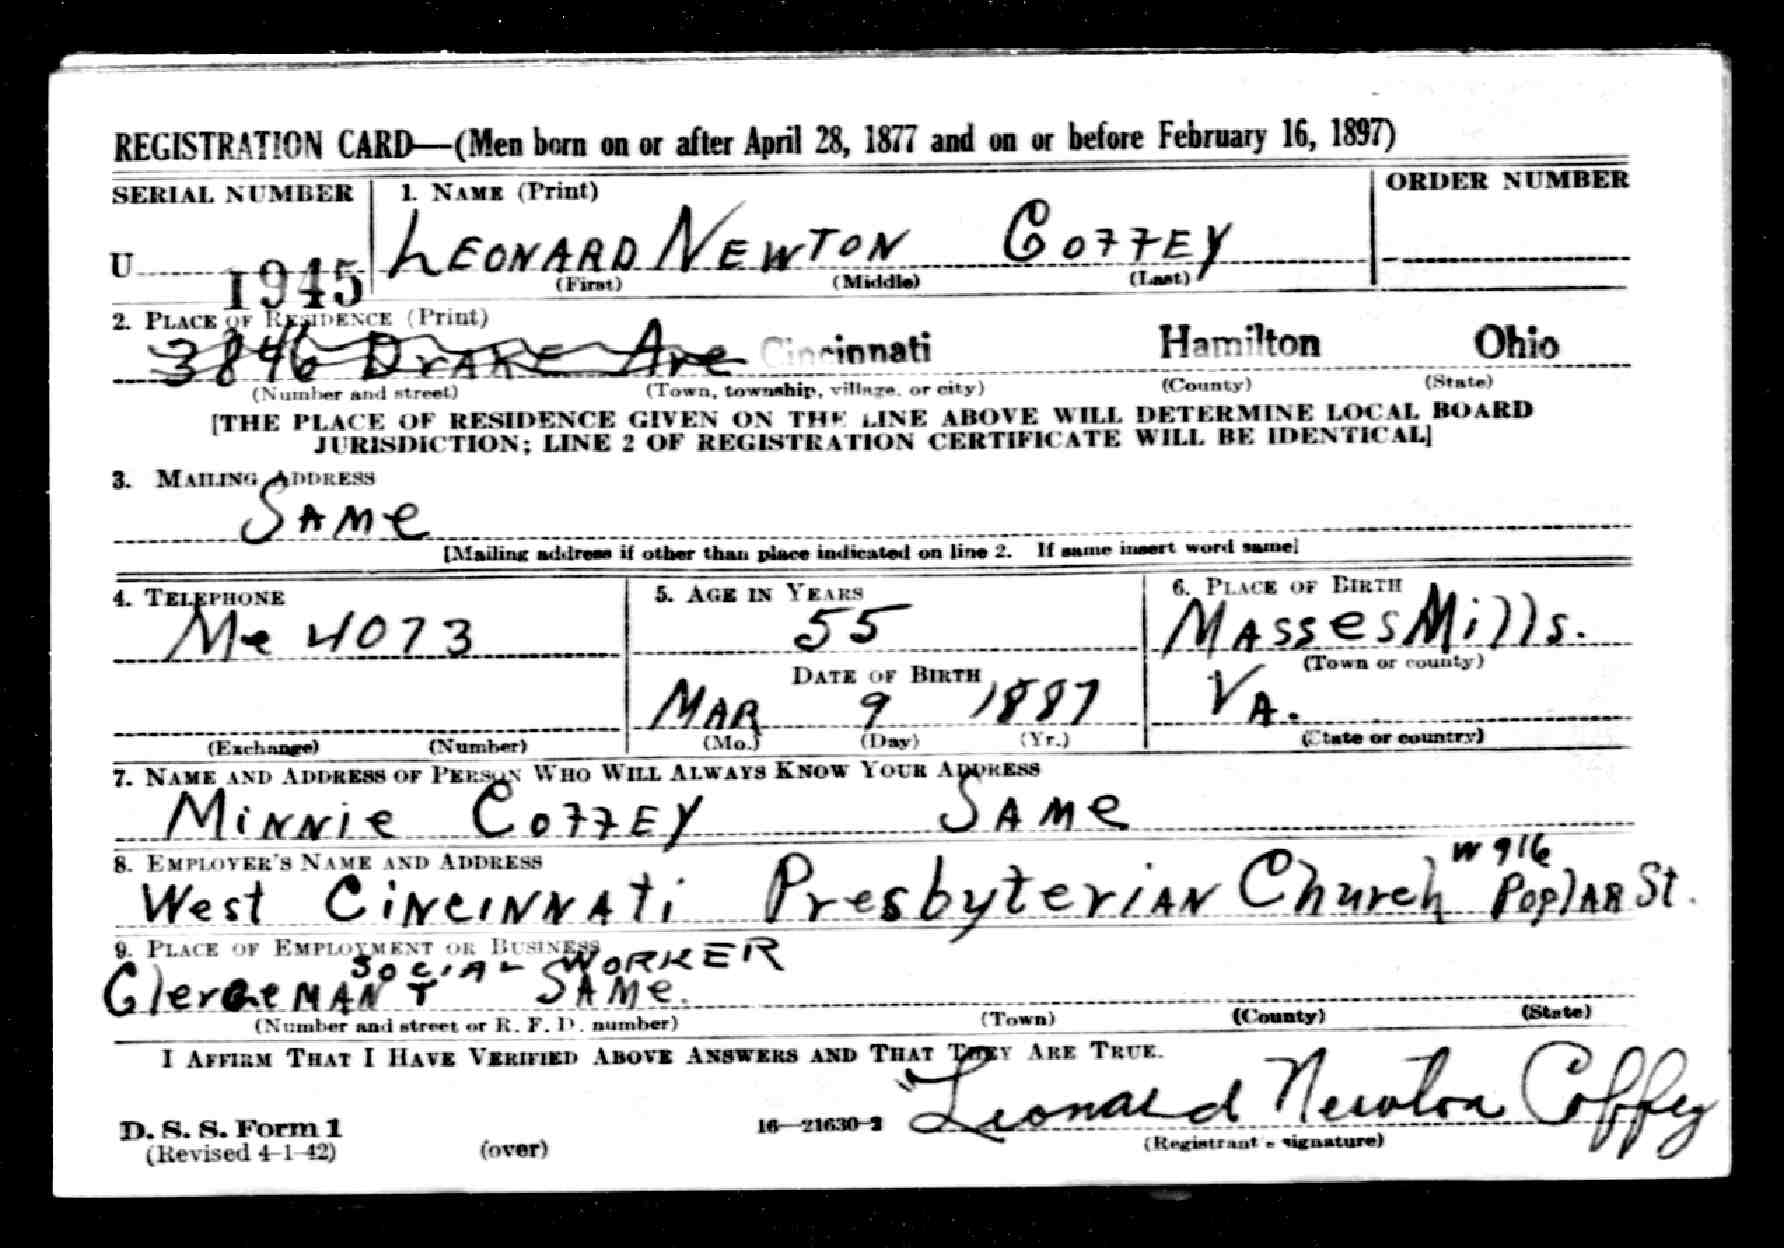 REGISTRATION CARD—(Men born on or after April 28, 1877 and on or before February 16, 1897)
SERIAL NUMBER 1. NAME (Print) ORDER NUMBER
U 1945 LEONARD NEWTON COFFEY
(First) (Middle) (Last)
2. PLACE OF RESIDENCE (Print)
3846 DRAKE Ave Cincinnati Hamilton Ohio
(Number and street) (Town, township, village, or city) (County) (State)
[THE PLACE OF RESIDENCE GIVEN ON THE LINE ABOVE WILL DETERMINE LOCAL BOARD
JURISDICTION; LINE 2 OF REGISTRATION CERTIFICATE WILL BE IDENTICAL]
3. MAILING ADDRESS
SAMe
[Mailing address if other than place indicated on line 2. If same insert word same]
4. TELEPHONE 5. AGE IN YEARS 6. PLACE OF BIRTH
Me 4073 55 MASSesMills.
(Town or county)
DATE OF BIRTH
MAR 9 1887 VA.
(Exchange) (Number) (Mo.) (Day) (Yr.) (State or country)
7. NAME AND ADDRESS OF PERSON WHO WILL ALWAYS KNOW YOUR ADDRESS
MiNNie COFFEY SAMe
8. EMPLOYER'S NAME AND ADDRESS
West CiNCiNNATi PresbyterIAN Church W 916 PoplAR St.
9. PLACE OF EMPLOYMENT OR BUSINESS
SOCIAL WORKER
SAMe.
(Number and street or R. F. D. number) (Town) (County) (State)
I AFFIRM THAT I HAVE VERIFIED ABOVE ANSWERS AND THAT THEY ARE TRUE.
Leonard Newton Coffey
D. S. S. Form 1 16—21630-2
(Revised 4-1-42) (over) (Registrant's signature)